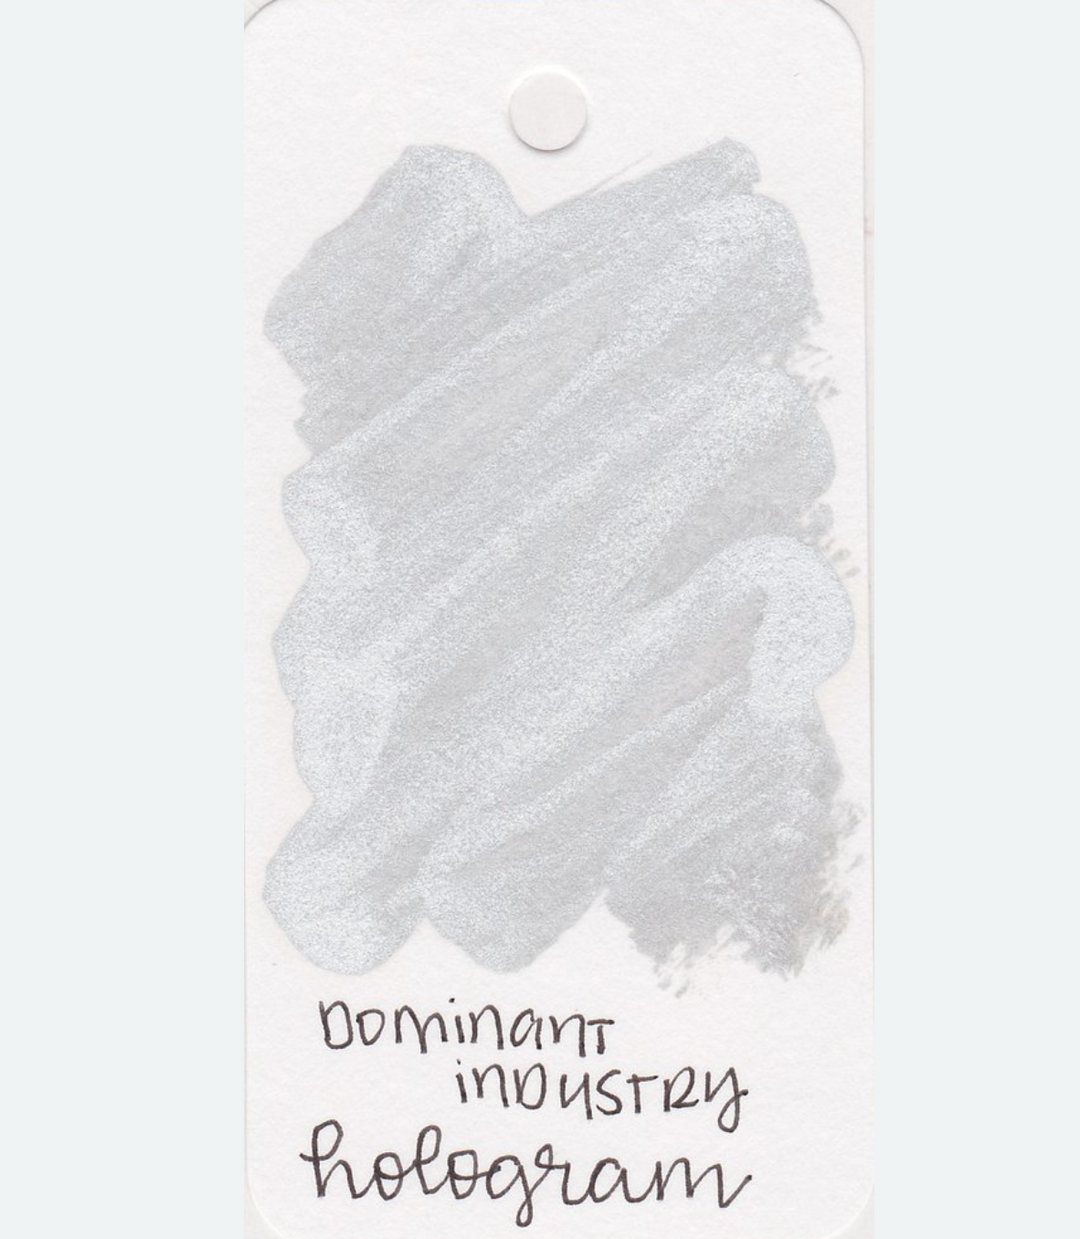 Dominant
inDUSTRY
hologram